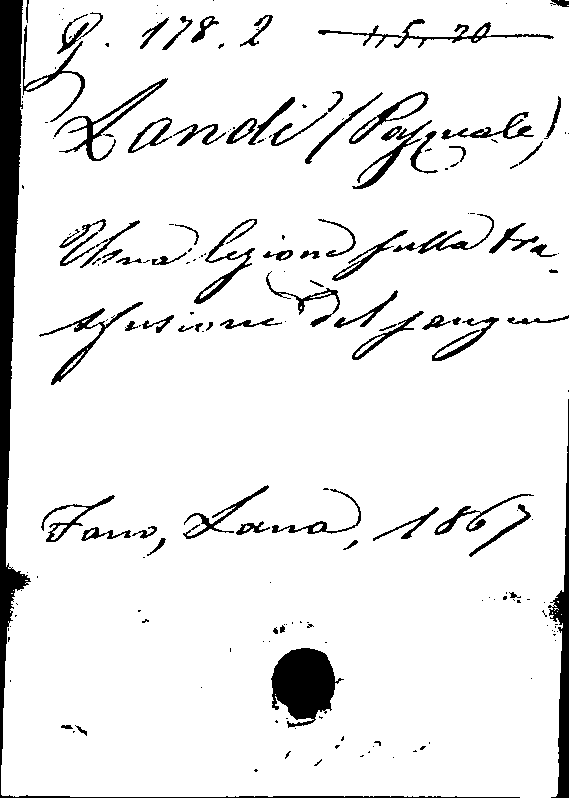 G. 178. 2 1, 5, 20
Landi (Pasquale)
Una lezione sulla tra-
sfusione del sangue
Fano, Lana, 1867